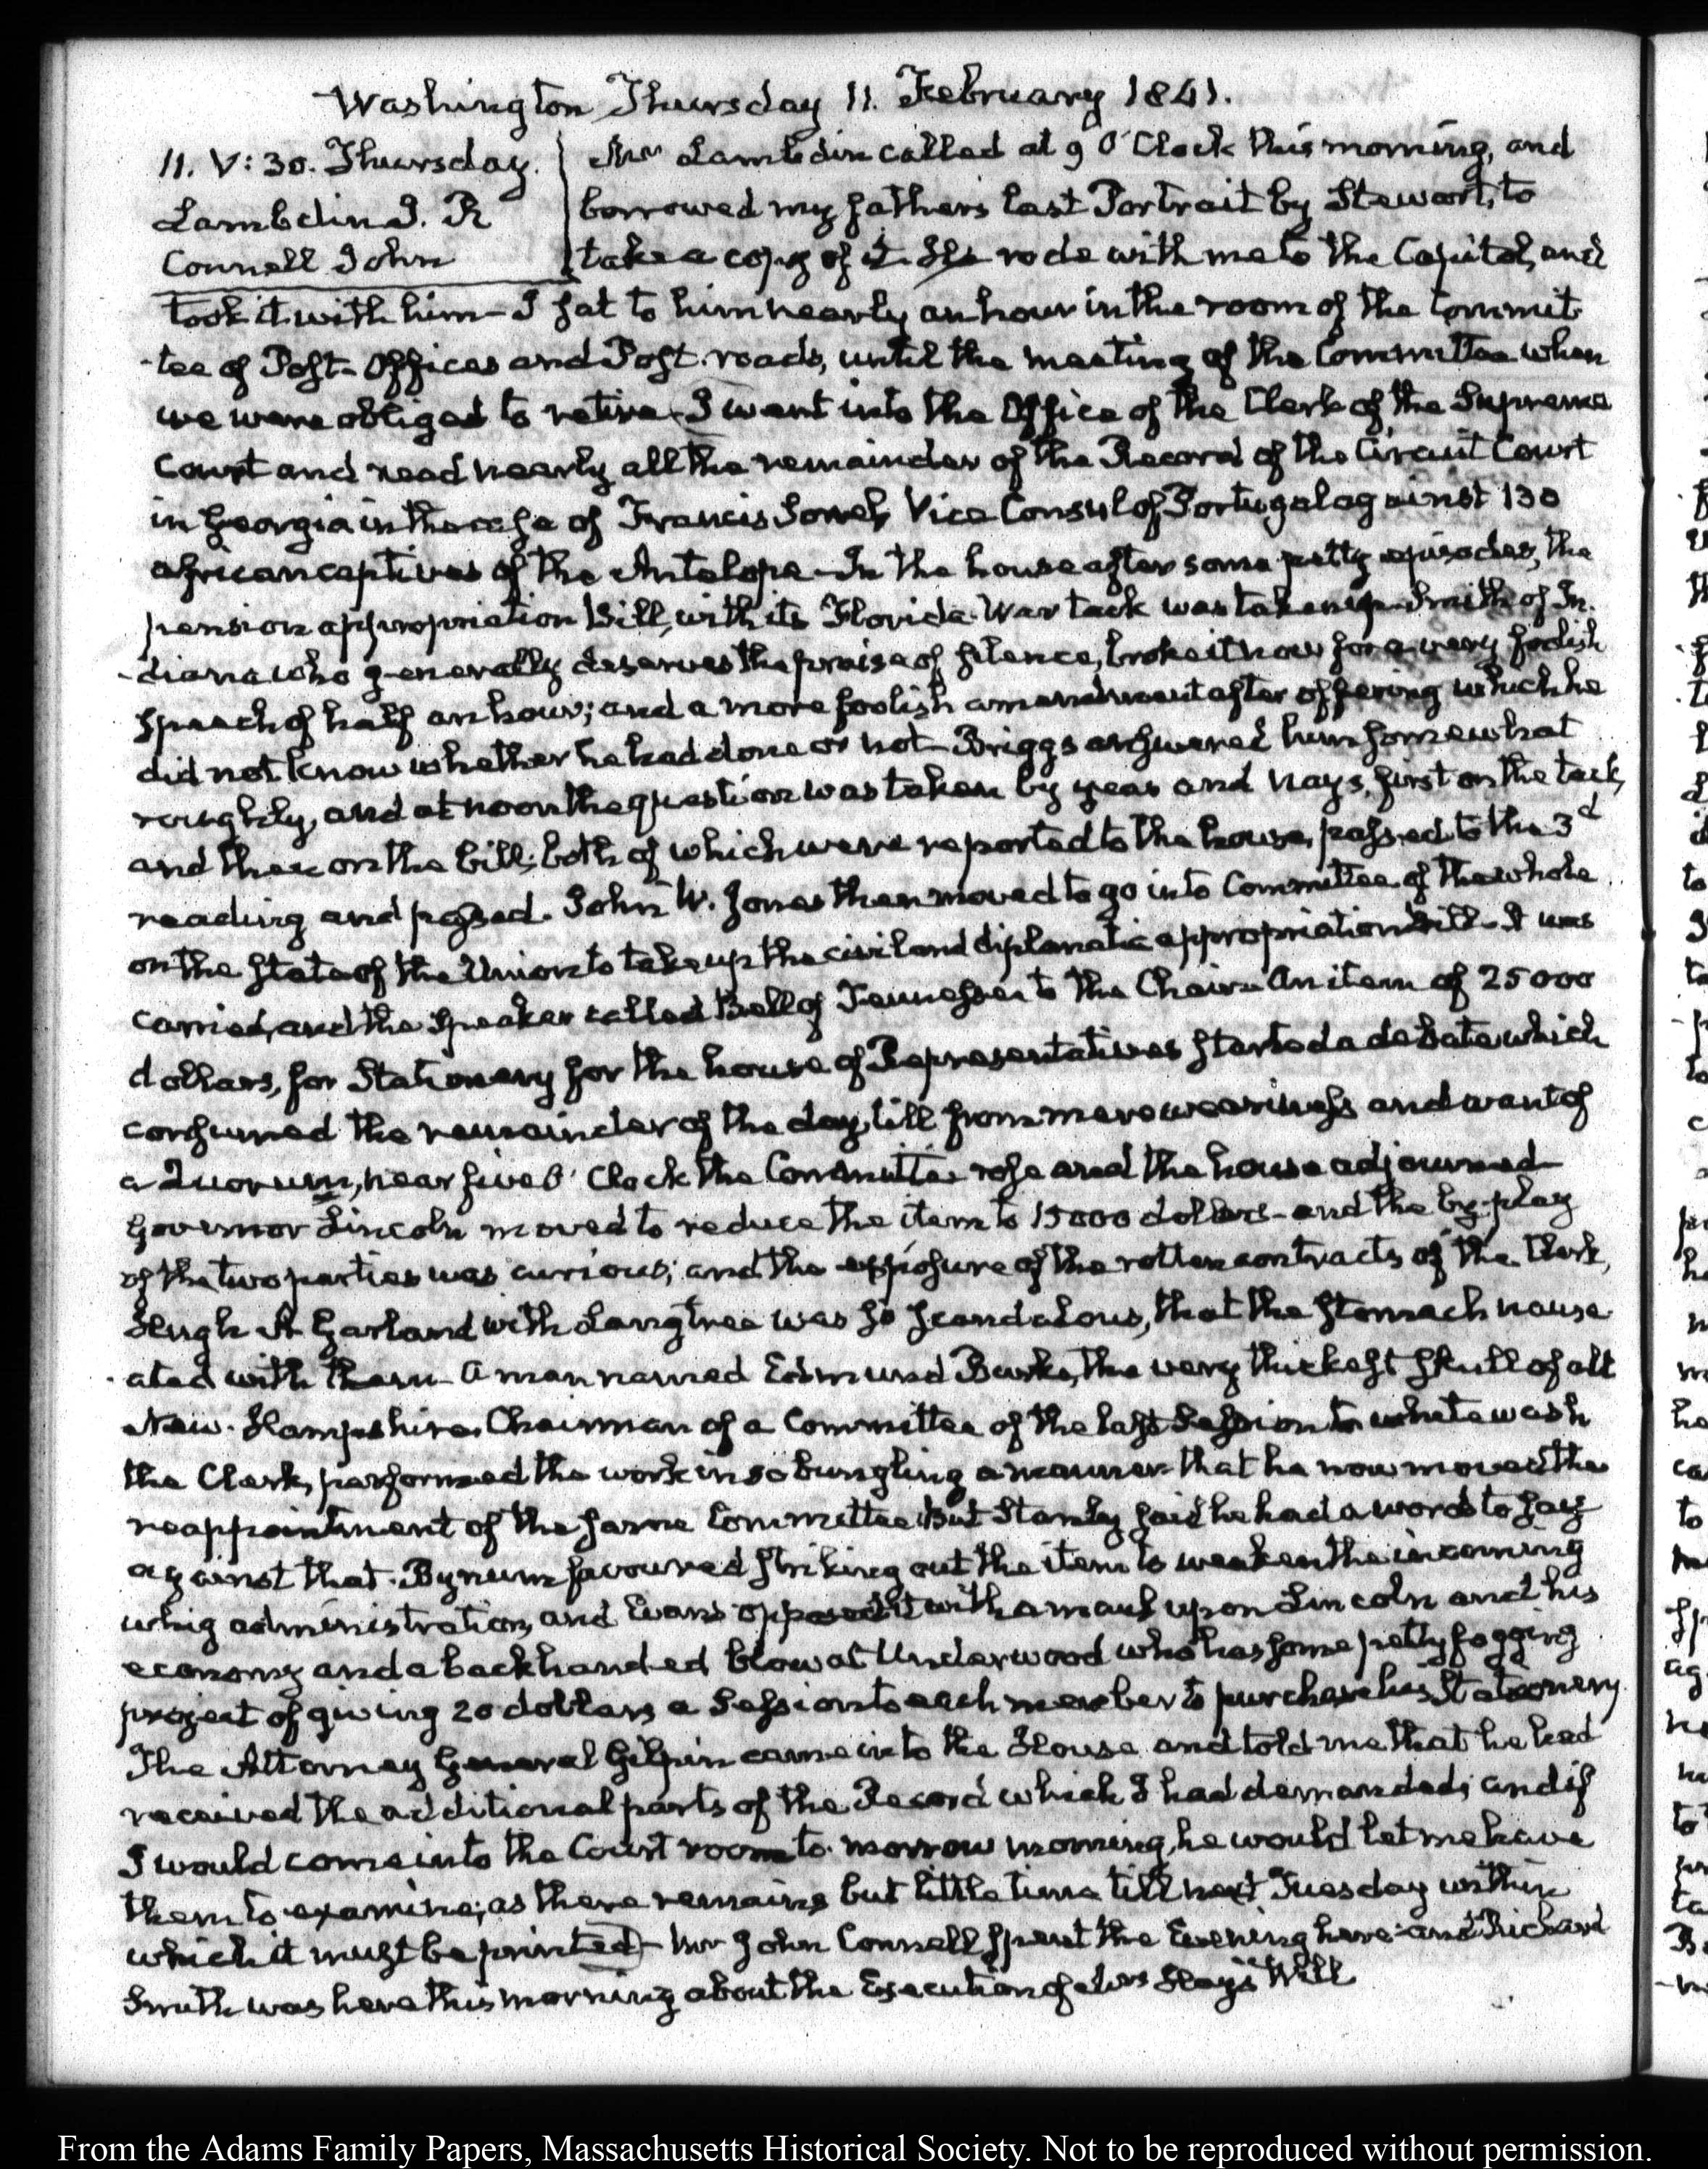 Washington Thursday 11. February 1841.
11. V: 30. Thursday.
Lambdin J. R
Connell John
Mr Lambdin called at 9 O'Clock this morning, and
borrowed my fathers last Portrait by Stewart, to
take a copy of it. He rode with me to the Capitol, and
took it with him— I sat to him nearly an hour in the room of the Commit-
-tee of Post-Offices and Post-roads, until the meeting of the Committee when
we were obliged to retire— I went into the Office of the Clerk of the Supreme
Court and read nearly all the remainder of the Record of the Circuit Court
in Georgia in the case of Francis Sorrel, Vice Consul of Portugal against 130
african captives of the Antelope— In the house after some petty episodes, the
pension appropriation Bill, with its Florida War tack was taken up— Smith of In-
-diana who generally deserves the praise of silence, broke it now for a very foolish
speech of half an hour; and a more foolish amendment after offering which he
did not know whether he had done or not— Briggs answered him somewhat
roughly, and at noon the question was taken by yeas and nays, first on the tack,
and then on the bill; both of which were reported to the house, passed to the 3d
reading and passed. John W. Jones then moved to go into Committee of the whole
on the State of the Union to take up the civil and diplomatic appropriation bill— It was
carried, and the Speaker called Bell of Tennessee to the Chair— An item of 25000
dollars, for Stationery for the house of Representatives started a debate which
consumed the remainder of the day, till from mere weariness and want of
a Quorum, near five O'Clock the Committee rose and the house adjourned—
Governor Lincoln moved to reduce the item to 15000 dollars— and the by-play
of the two parties was curious; and the exposure of the rotten contracts of the Clerk,
Hugh A Garland with Langtree was so scandalous, that the stomach nause-
-ated with them— A man named Edmund Burke, the very thickest skull of all
New-Hampshire, Chairman of a Committee of the last Session to white wash
the Clerk, performed the work in so bungling a manner that he now moved the
reappointment of the same Committee. But Stanly said he had a word to say
against that. Bynum favoured striking out the item to weaken the incoming
whig administration, and Evans opposed it with a maul upon Lincoln and his
economy and a backhanded blow at Underwood who has some pettyfogging
project of giving 20 dollars a Session to each member to purchase his Stationery.
The Attorney General Gilpin came into the House and told me that he had
received the additional parts of the Record which I had demanded; and if
I would come into the Court room to-morrow morning, he would let me have
them to examine; as there remains but little time till next Tuesday within
which it must be printed— Mr John Connell spent the Evening here— and Richard
Smith was here this morning about the Execution of Mrs Hay's Will
From the Adams Family Papers, Massachusetts Historical Society. Not to be reproduced without permission.